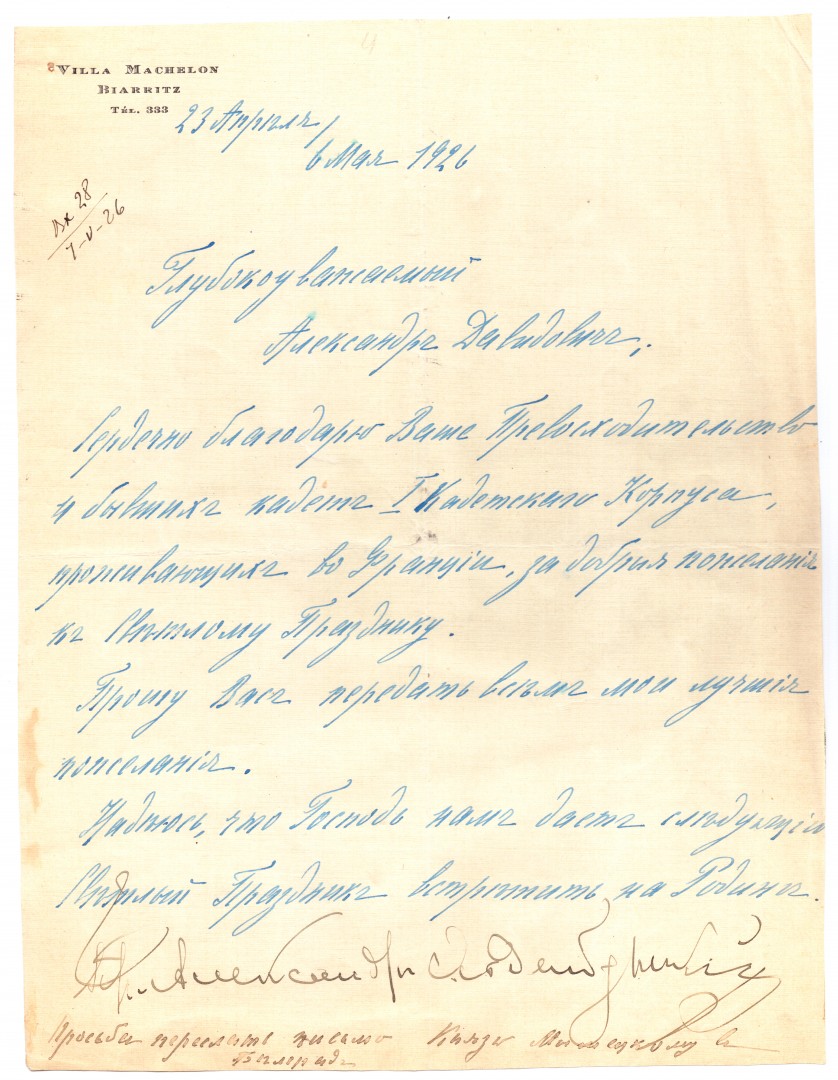 VILLA MACHELON
BIARRITZ
TÉL. 333
23 Апрѣля/
6 Мая 1926
Вх 28
7-V-26
Глубокоуважаемый
Александръ Давидовичъ,
Сердечно благодарю Ваше Превосходительство
и бывшихъ кадетъ I Кадетскаго Корпуса,
проживающихъ во Франціи, за добрыя пожеланія
къ Свѣтлому Празднику.
Прошу Васъ передать всѣмъ мои лучшія
пожеланія.
Надѣюсь, что Господь намъ дастъ слѣдующій
Свѣтлый Праздникъ встрѣтить на Родинѣ.
Александръ Ольденбургскій
Просьба переслать письмо Князю в
Бѣлградъ